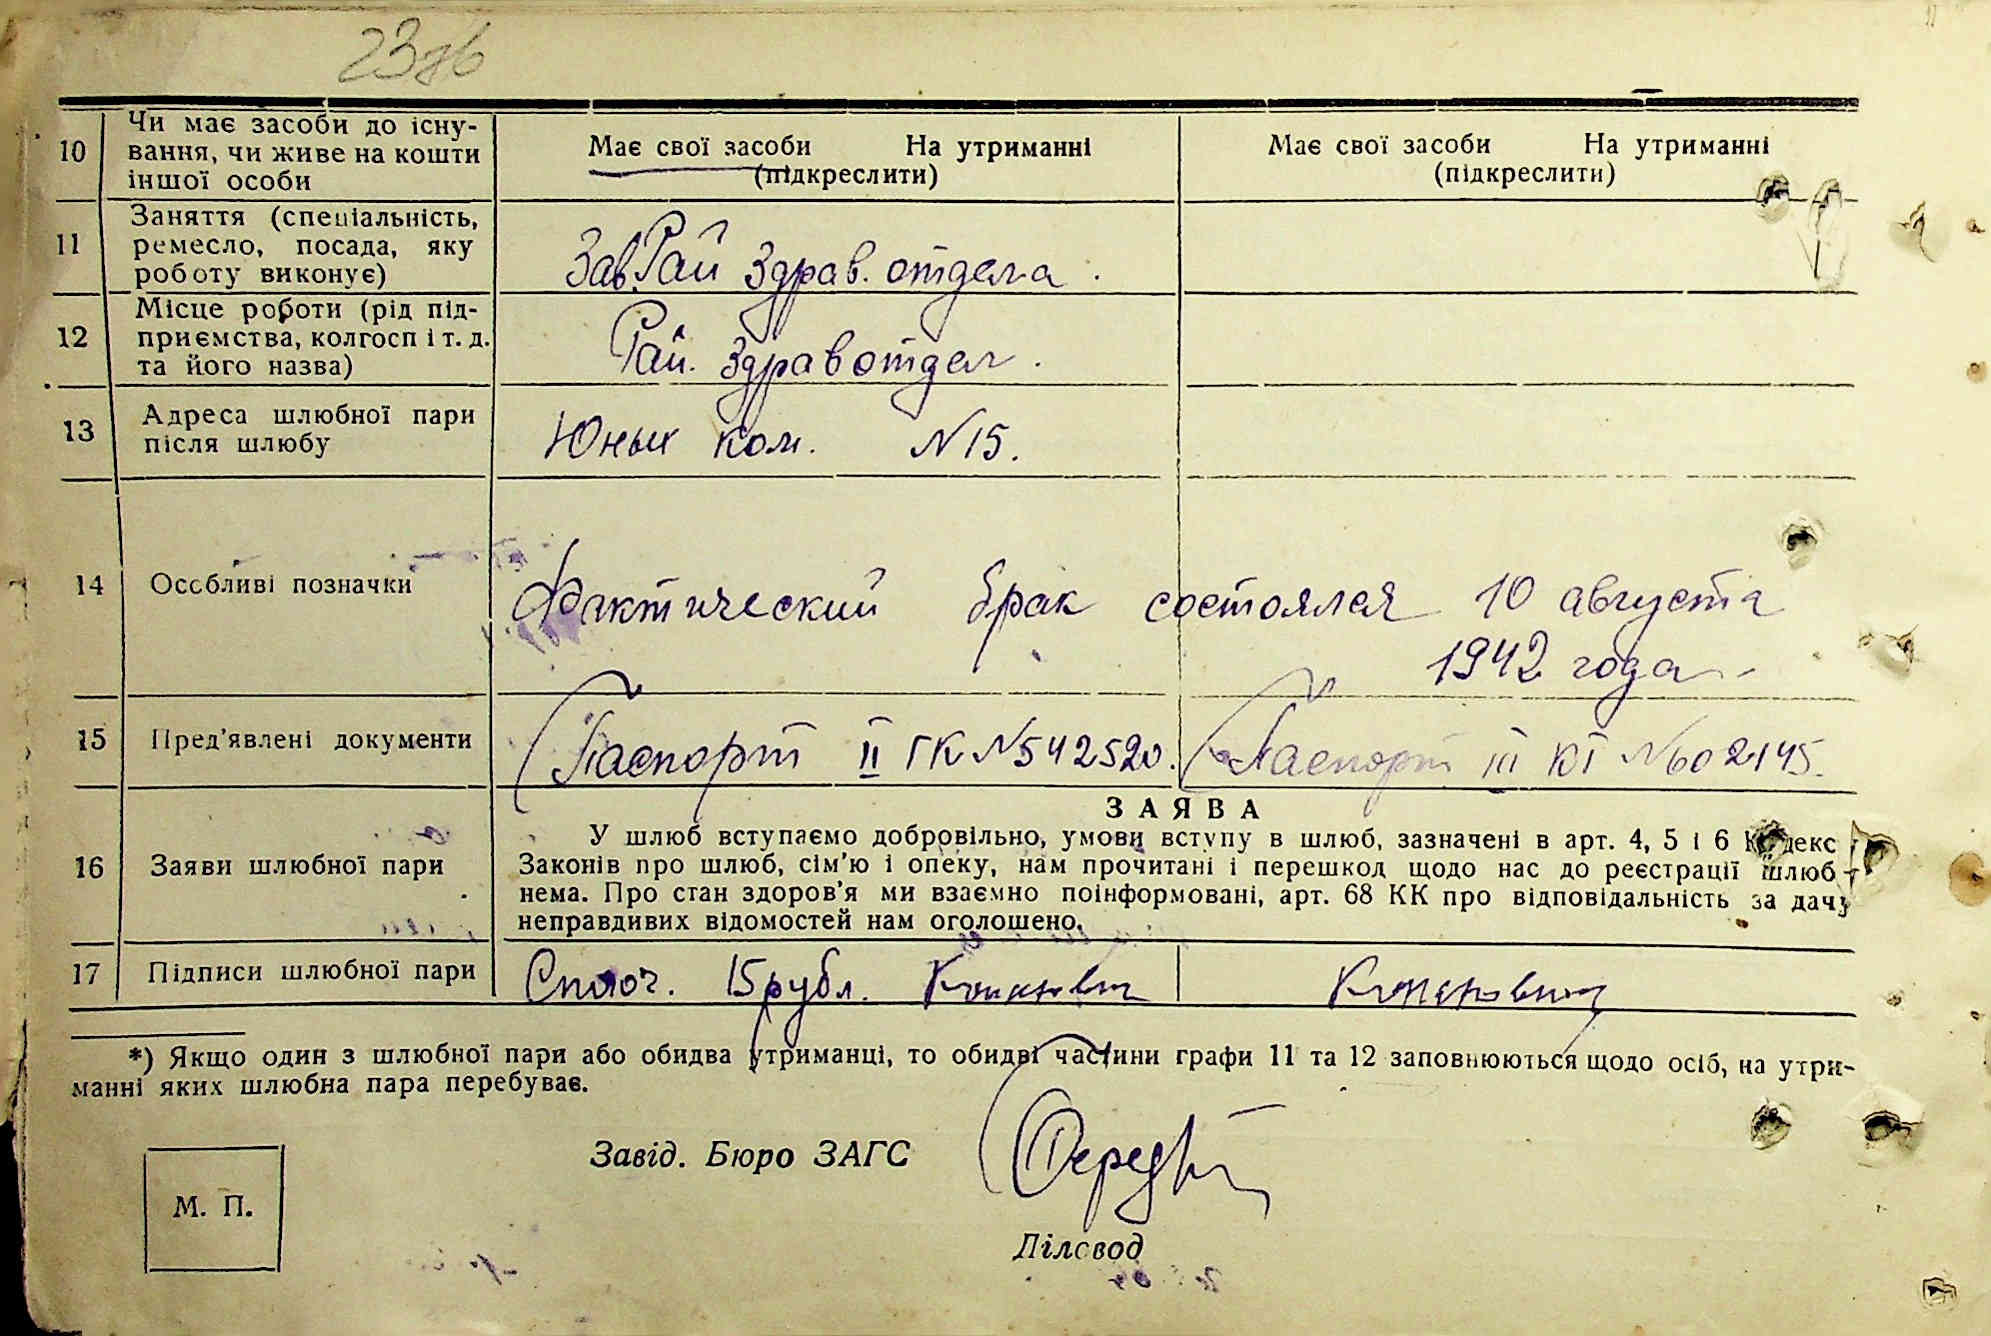 10
Чи має засоби до існу-
вання, чи живе на кошти
іншої особи
Має свої засоби На утриманні
(підкреслити)
Має свої засоби На утриманні
(підкреслити)
11
Заняття (спеціальність,
ремесло, посада, яку
роботу виконує)
Зав.Рай Здрав. отдела.
12
Місце роботи (рід під-
приємства, колгосп і т. д.
та його назва)
Рай. Здравотдел.
13
Адреса шлюбної пари
після шлюбу
Юных Ком. N 15.
14
Особливі позначки
Фактический брак состоялся 10 августа
1942 года
15
Пред'явлені документи
Паспорт II ГК N 542520.
Паспорт III КТ N 602145.
16
Заяви шлюбної пари
ЗАЯВА
У шлюб вступаємо добровільно, умови вступу в шлюб, зазначені в арт. 4, 5 і 6 Кодекс
Законів про шлюб, сім'ю і опеку, нам прочитані і перешкод щодо нас до реєстрації шлюб
нема. Про стан здоров'я ми взаємно поінформовані, арт. 68 КК про відповідальність за дачу
неправдивих відомостей нам оголошено.
17
Підписи шлюбної пари
15 рубл.
*) Якщо один з шлюбної пари або обидва утриманці, то обидві частини графи 11 та 12 заповнюються щодо осіб, на утри-
манні яких шлюбна пара перебуває.
Завід. Бюро ЗАГС
М. П.
Діловод